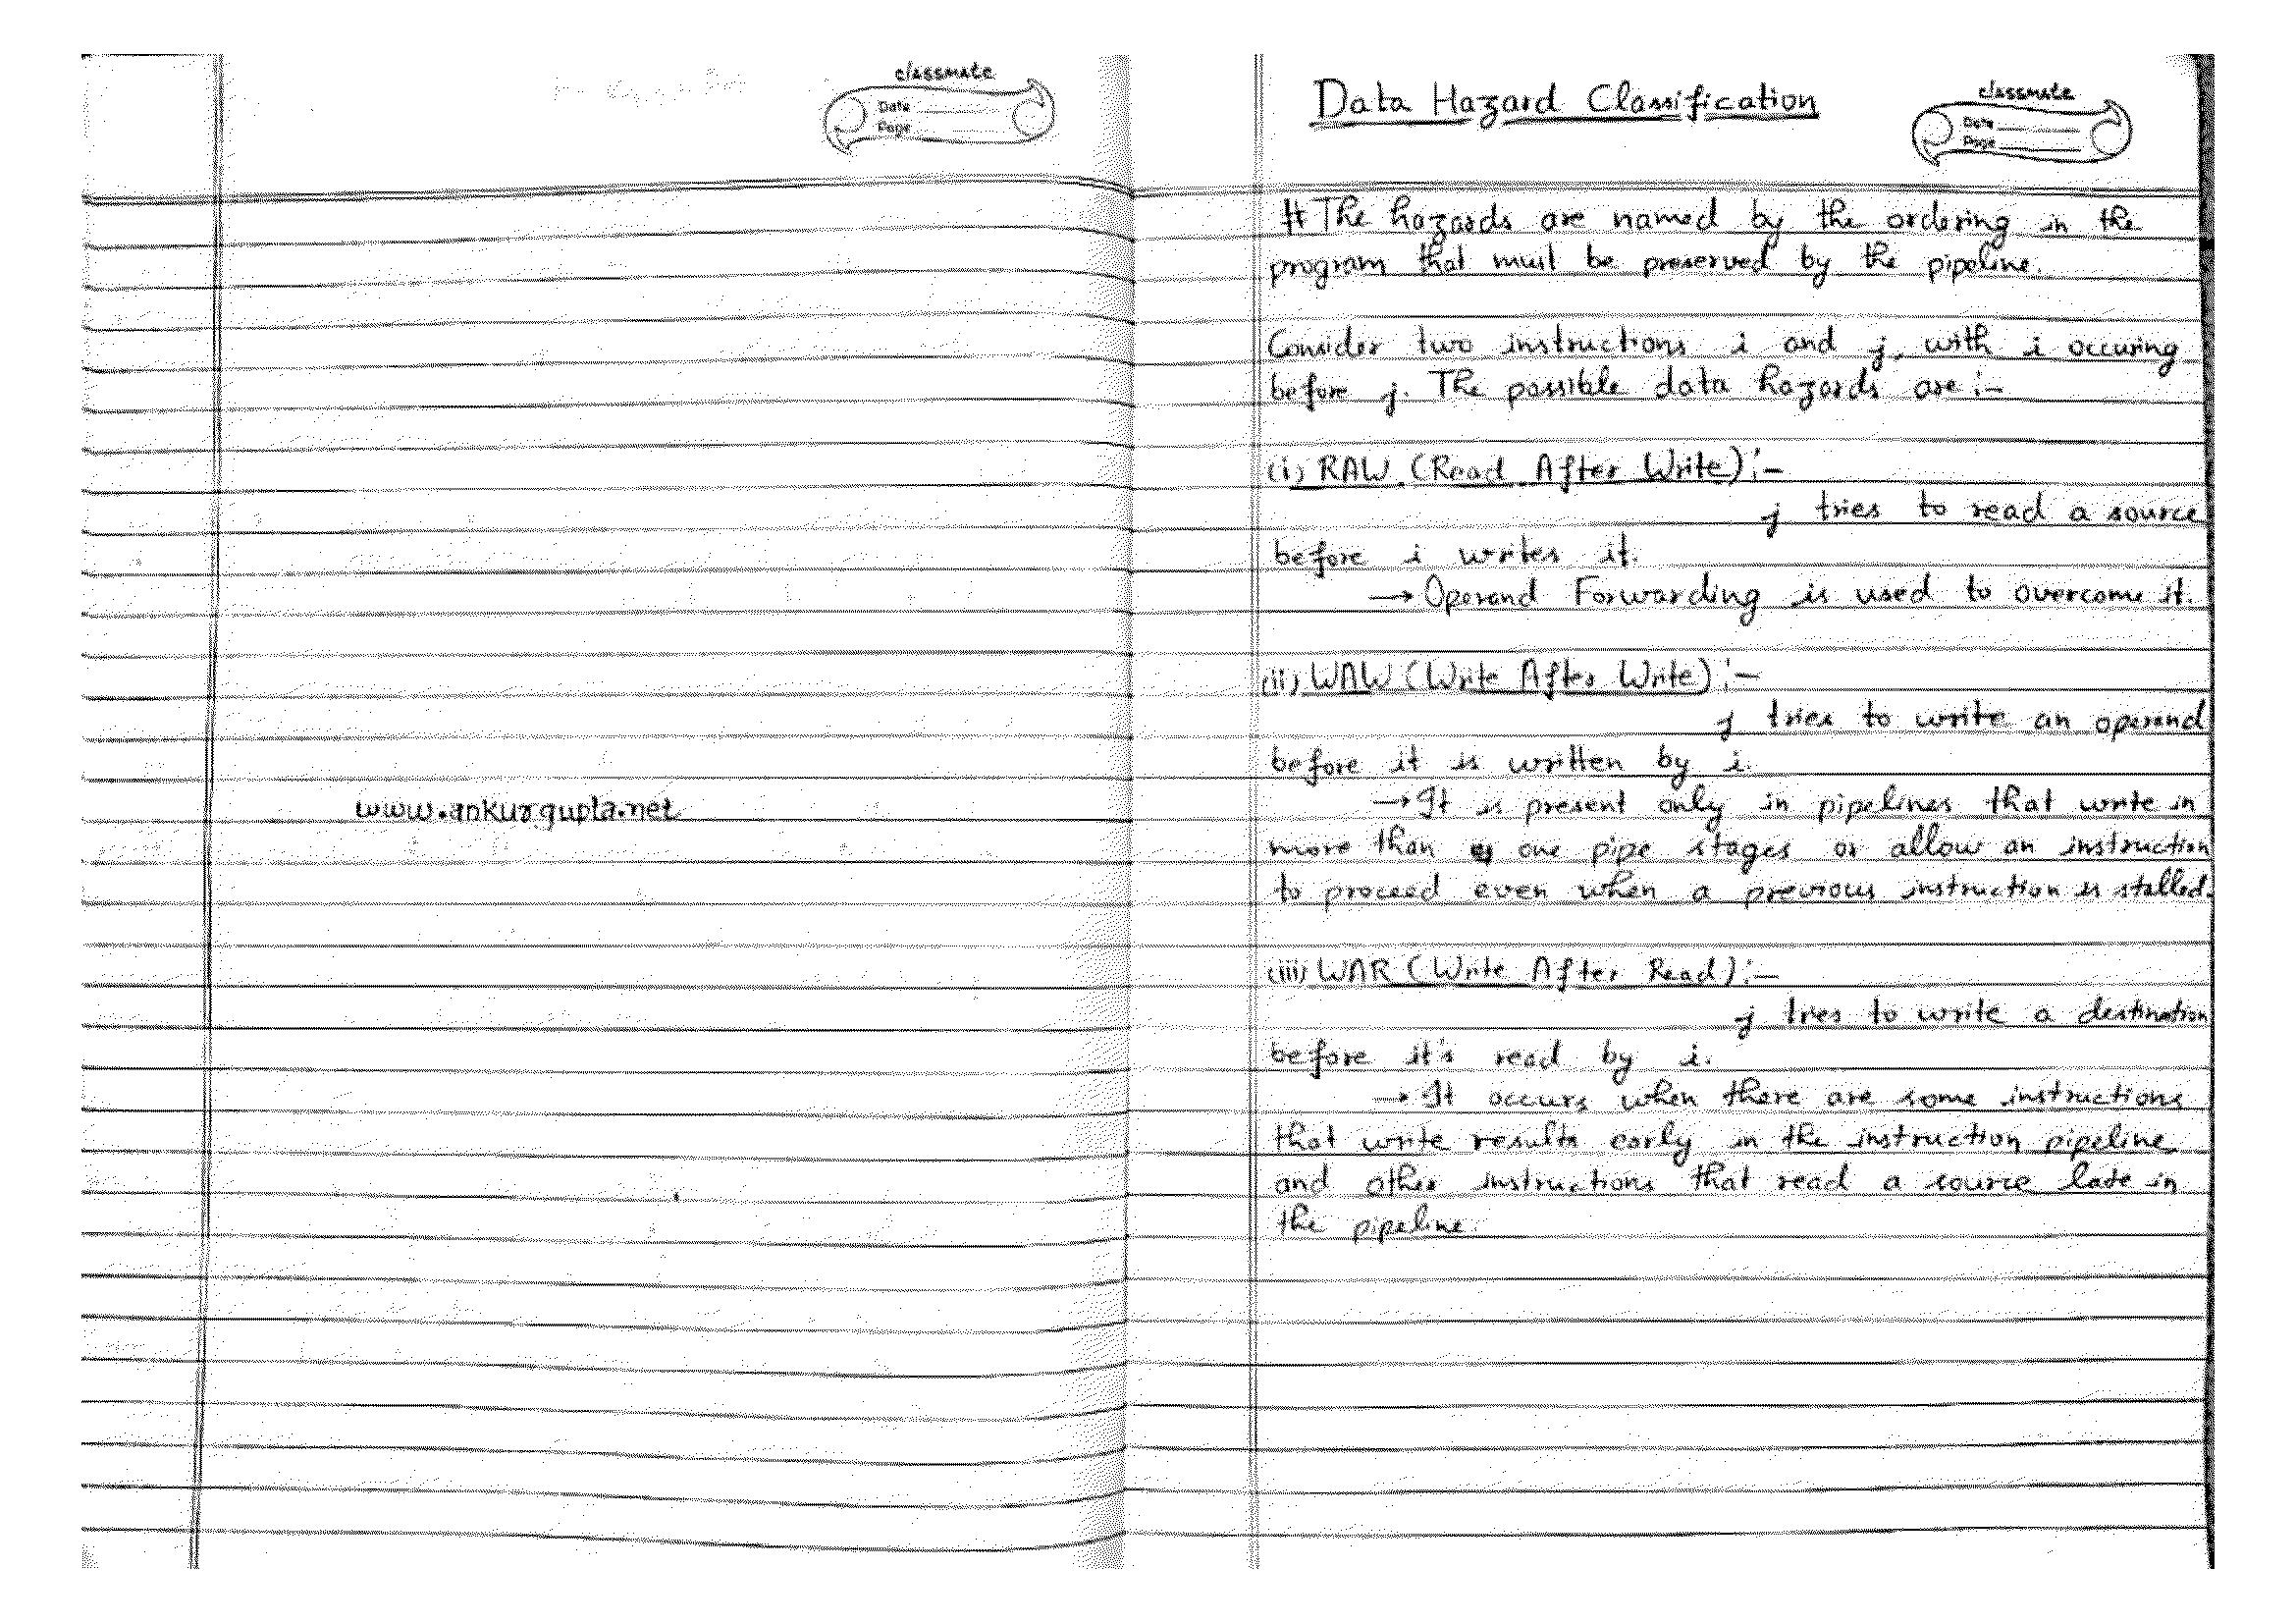 classmate
Date
Page
www.ankurgupta.net
Data Hazard Classification
classmate
Date
Page
# The hazards are named by the ordering in the
program that must be preserved by the pipeline.
Consider two instructions i and j, with i occuring
before j. The possible data hazards are :-
(i) RAW (Read After Write) :-
j tries to read a source
before i writes it.
→ Operand Forwarding is used to overcome it.
(ii) WAW (Write After Write) :-
j tries to write an operand
before it is written by i.
→ It is present only in pipelines that write in
more than one pipe stages or allow an instruction
to proceed even when a previous instruction is stalled.
(iii) WAR (Write After Read) :-
j tries to write a destination
before it's read by i.
→ It occurs when there are some instructions
that write results early in the instruction pipeline
and other instructions that read a source late in
the pipeline.